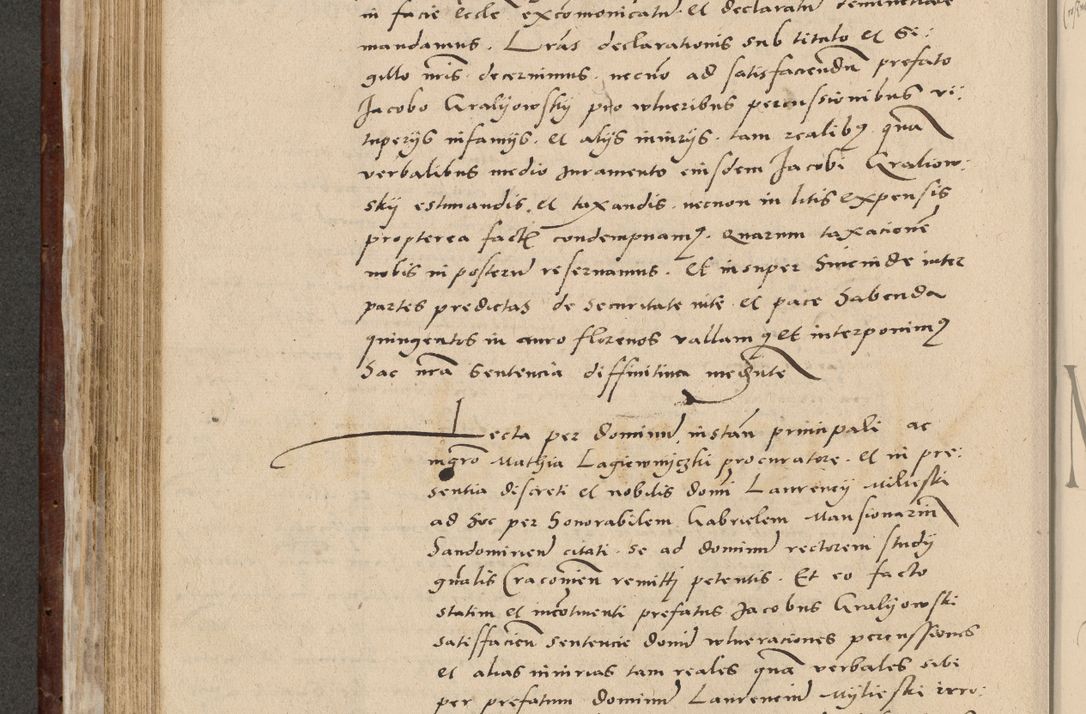 in facie eccle excomonicatu et declaratu denunctiare
mandamus. Lras declarationis sub titulo et si:
gillo nris decernimus necno ad satisfaciendu prefato
Jacobo Gralyowsky pro vlneribus percussionibus vi:
tuperys infamys et alys iniurys tam realibꝫ qua
verbalibus medio Juramento eiusdem Jacobi Graliow:
sky estimandis et taxandis necnon in litis expensis
propterea facti condempnamꝫ. Quarum taxacione
nobis in posteru reseruamus. Et insuper hincinde inter
partes predictas de securitate vite et pace habenda
quingentis in auro florenos vallamꝫ et interponimꝫ
hac nra sentencia diffinitiua mediante
Lecta per dominu instan principali ac
mgro Mathia Lagiewniczki procuratore et in pre:
sentia discreti et nobilis domi Laurency Milieski
ad hoc per honorabilem Gabrielem Mansionariu
Sandomirien citati se ad dominu rectorem study
gnalis Cracouien remitti petentis. Et eo facto
statim et incotinenti prefatus Jacobus Gralyowski
satisfacien sentencie domi vlnerationes percussiones
et alias iniurias tam reales qua verbales sibi
per prefatum dominu Laurenciu Mylieski irro: